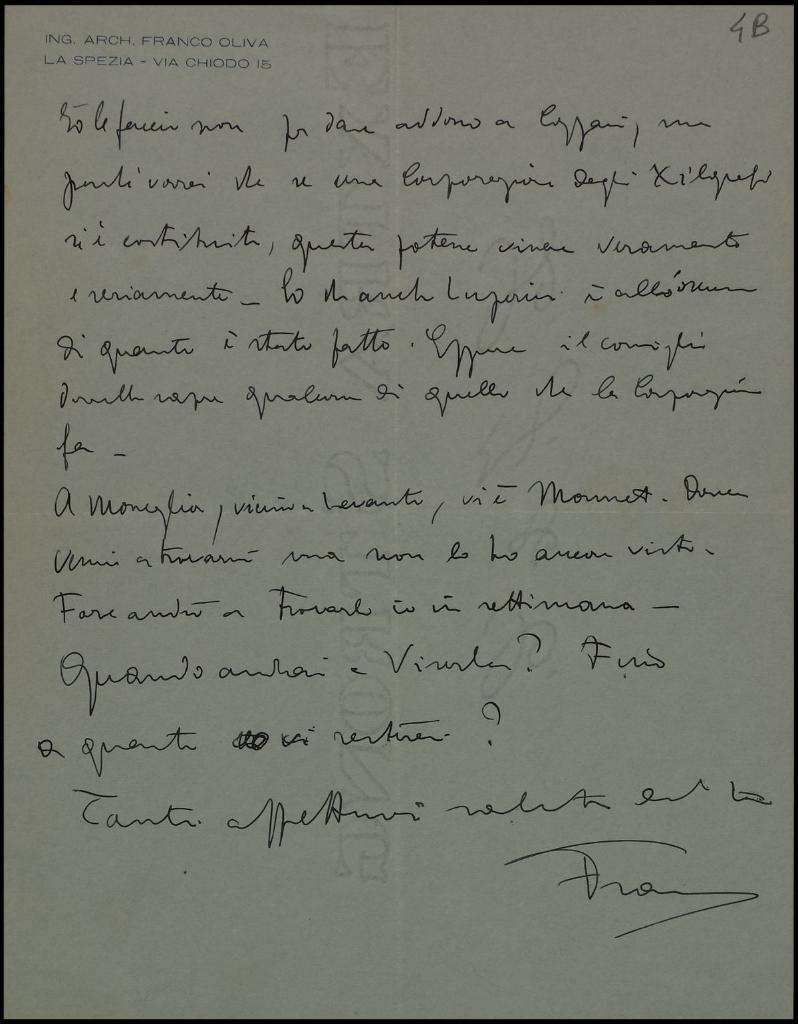 4B
ING. ARCH. FRANCO OLIVA
LA SPEZIA - VIA CHIODO 15
non per dare addosso a Cozzani, ma
vorrei che se una Corporazione degli Xilografi
si è costituita, questa potesse vivere veramente
e seriamente _ So che anch è all'oscuro
di quanto è stato fatto. Eppure il consiglio
sapere qualcosa di quello che la Corporazione
fa _
A Moneglia, vicino a Levanto, vi è . Doveva
venire a trovarmi ma non lo ho ancora visto.
Forse andrò a trovarlo io in settimana _
Quando andrai a ? Fino
a quando vi resterai ?
Tanti affettuosi saluti
Fran